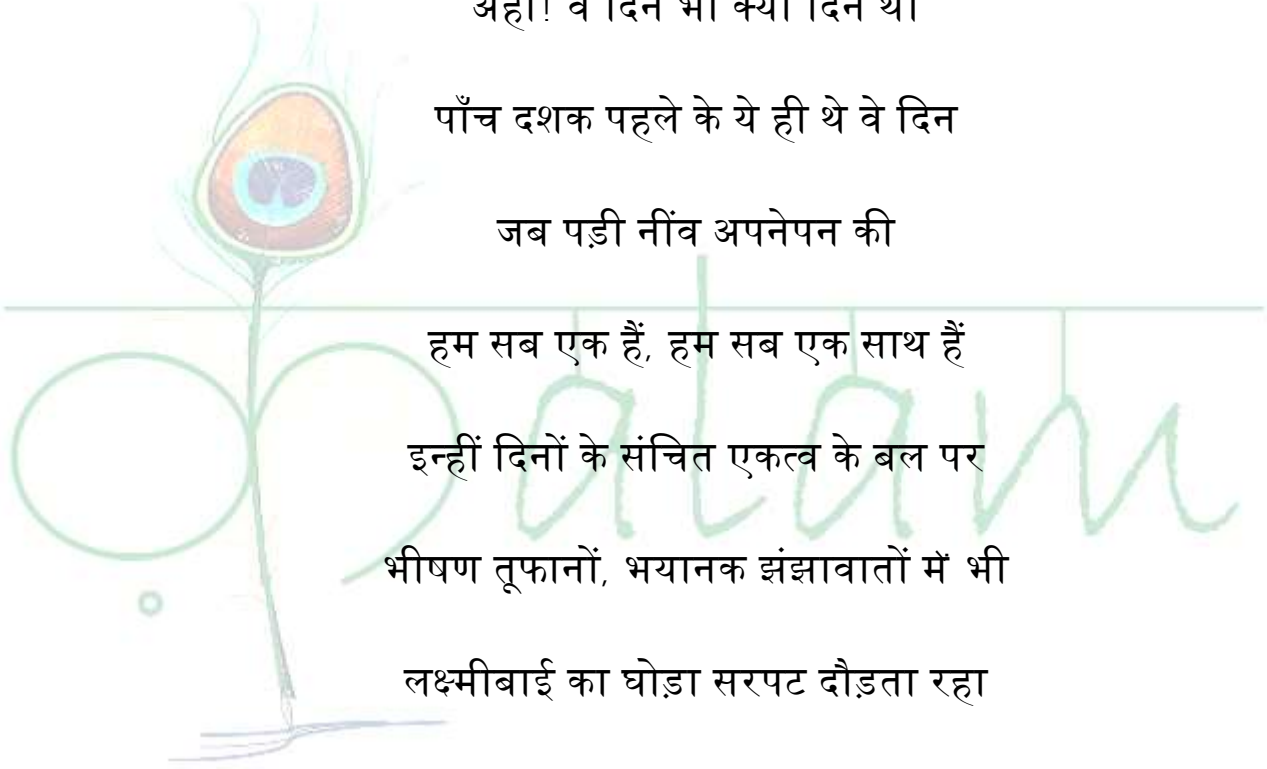 अहा! वे दिन भी क्या दिन थे
पाँच दशक पहले के ये ही थे वे दिन
जब पड़ी नींव अपनेपन की
हम सब एक हैं, हम सब एक साथ हैं
इन्हीं दिनों के संचित एकत्व के बल पर
भीषण तूफानों, भयानक झंझावातों में भी
लक्ष्मीबाई का घोड़ा सरपट दौड़ता रहा
क़alam